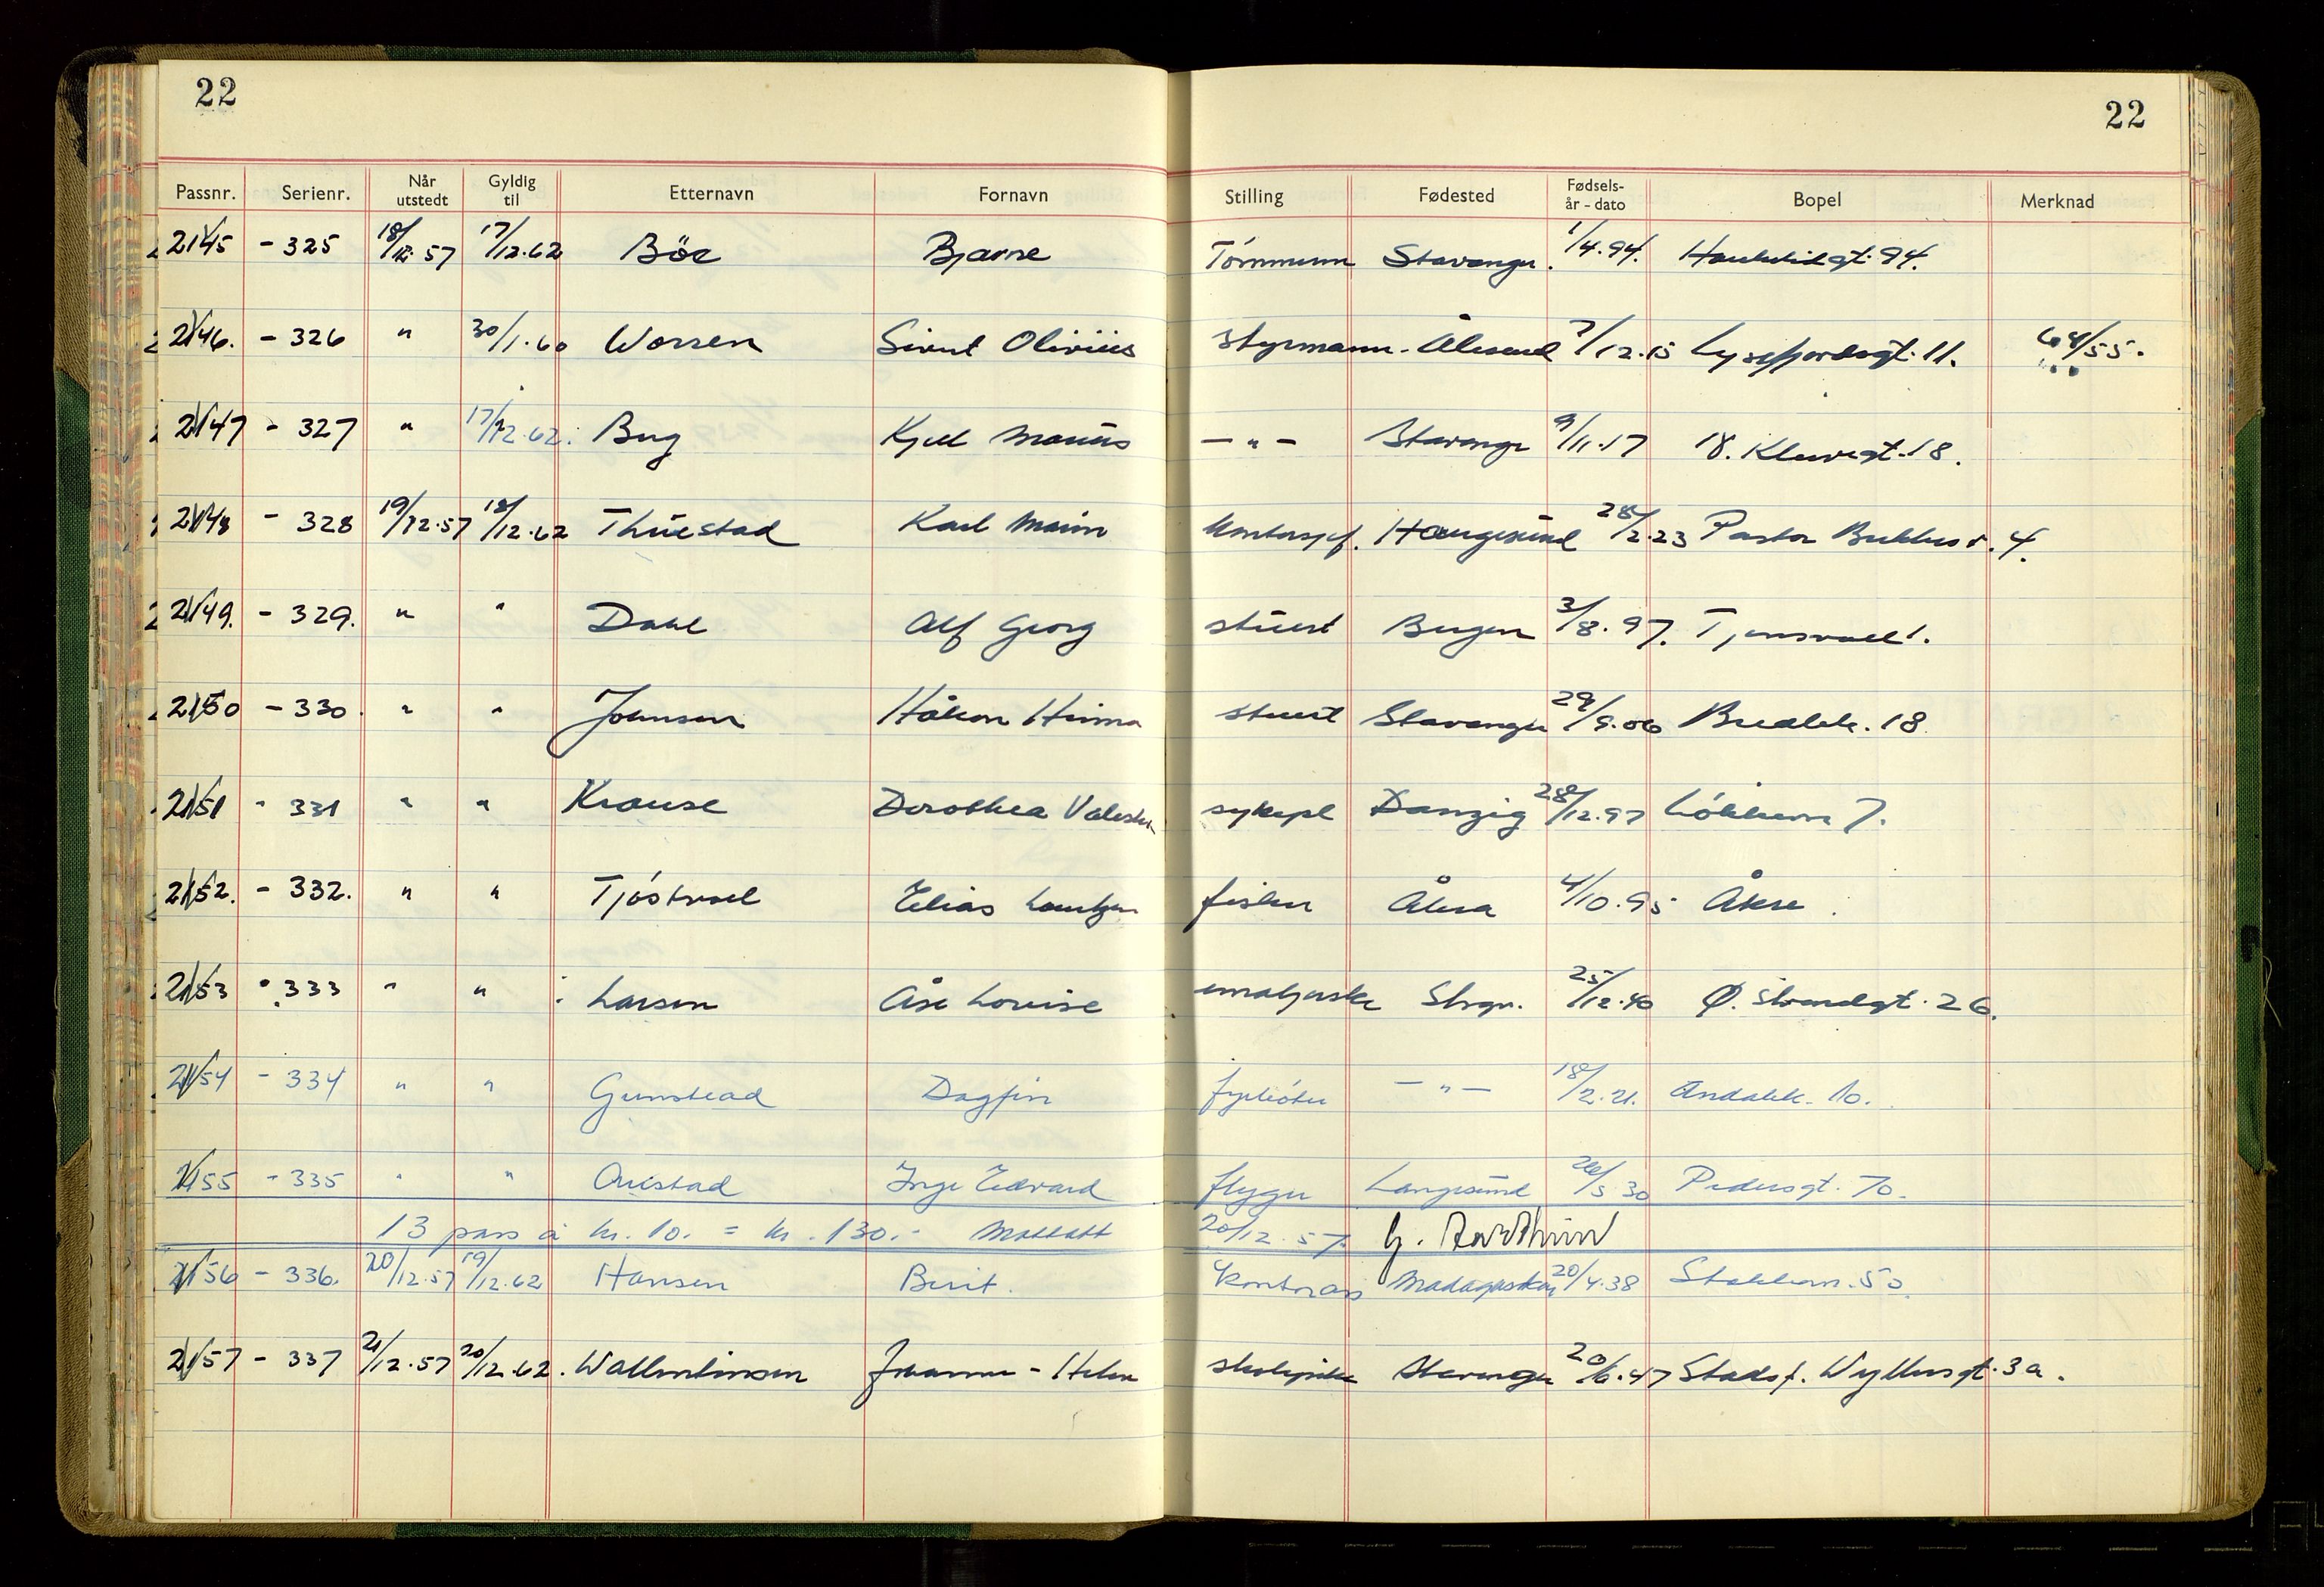 22 22
Passnr. Serienr. Når utstedt Gyldig til Etternavn Fornavn Stilling Fødested Fødsels- år - dato Bopel Merknad
2145 - 325 18/12.57 17/12.62 Böe Bjarne Tömmerm Stavanger. 1/4.94. Haukeligt. 94.
2146. - 326 " 30/1.60 Worren Sivert Olivius styrmann. Ålesund 7/12.15 Lysefjordsgt. 11. 68/55.
2147 - 327 " 17/12.62. Berg Kjell Marius — " — Stavanger 9/11.17 18. gt. 18.
2148 - 328 19/12.57 18/12.62 Thuestad Karl Martin kontorsjef. Haugesund 28/2.23 Pastor v. 4.
2149. - 329. " " Dahl Alf Georg stuert Bergen 3/8.97. Tjensvoll 1.
2150 - 330. " " Johnsen Håkon stuert Stavanger 29/9.06 Bredbk. 18
2151 - 331 " " Krause Dorothea sykepl Danzig 28/12.97 Lökkevn 7.
2152. - 332. " " Tjöstvoll Elias Lauritzen fisker Åkra 4/10.95 Åkra.
2153 - 333 " " Larsen Åse Louise emaljerske Stvgr. 25/12.40 Ø. Strandgt. 26.
2154 - 334 " " Grimstead Dagfin fyrböter — " — 18/2.21. Andabk. 10.
2155 - 335 " " Austad Inge Edvard flyger Langesund 26/5.30 Pedersgt. 70.
13 pass à kr. 10. = kr. 130.- Mottatt 20/12.57.
2156 - 336. 20/12.57 19/12.62 Hansen Berit. kontorass Madagaskar 20/4.38 Stokkavn. 50.
2157 - 337 21/12.57 20/12.62. Wallentinsen Johanne - Helen skolepike Stavanger 20/6.47 Stadsf. Wyllersgt. 3a.